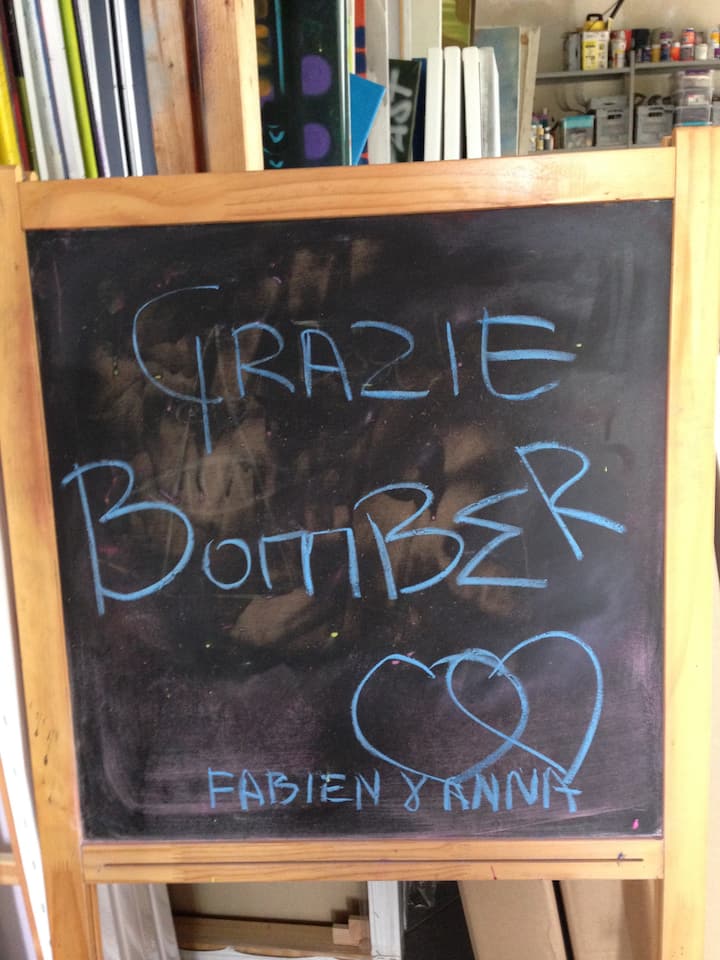 GRAZIE
BOMBER
FABIEN & ANNA